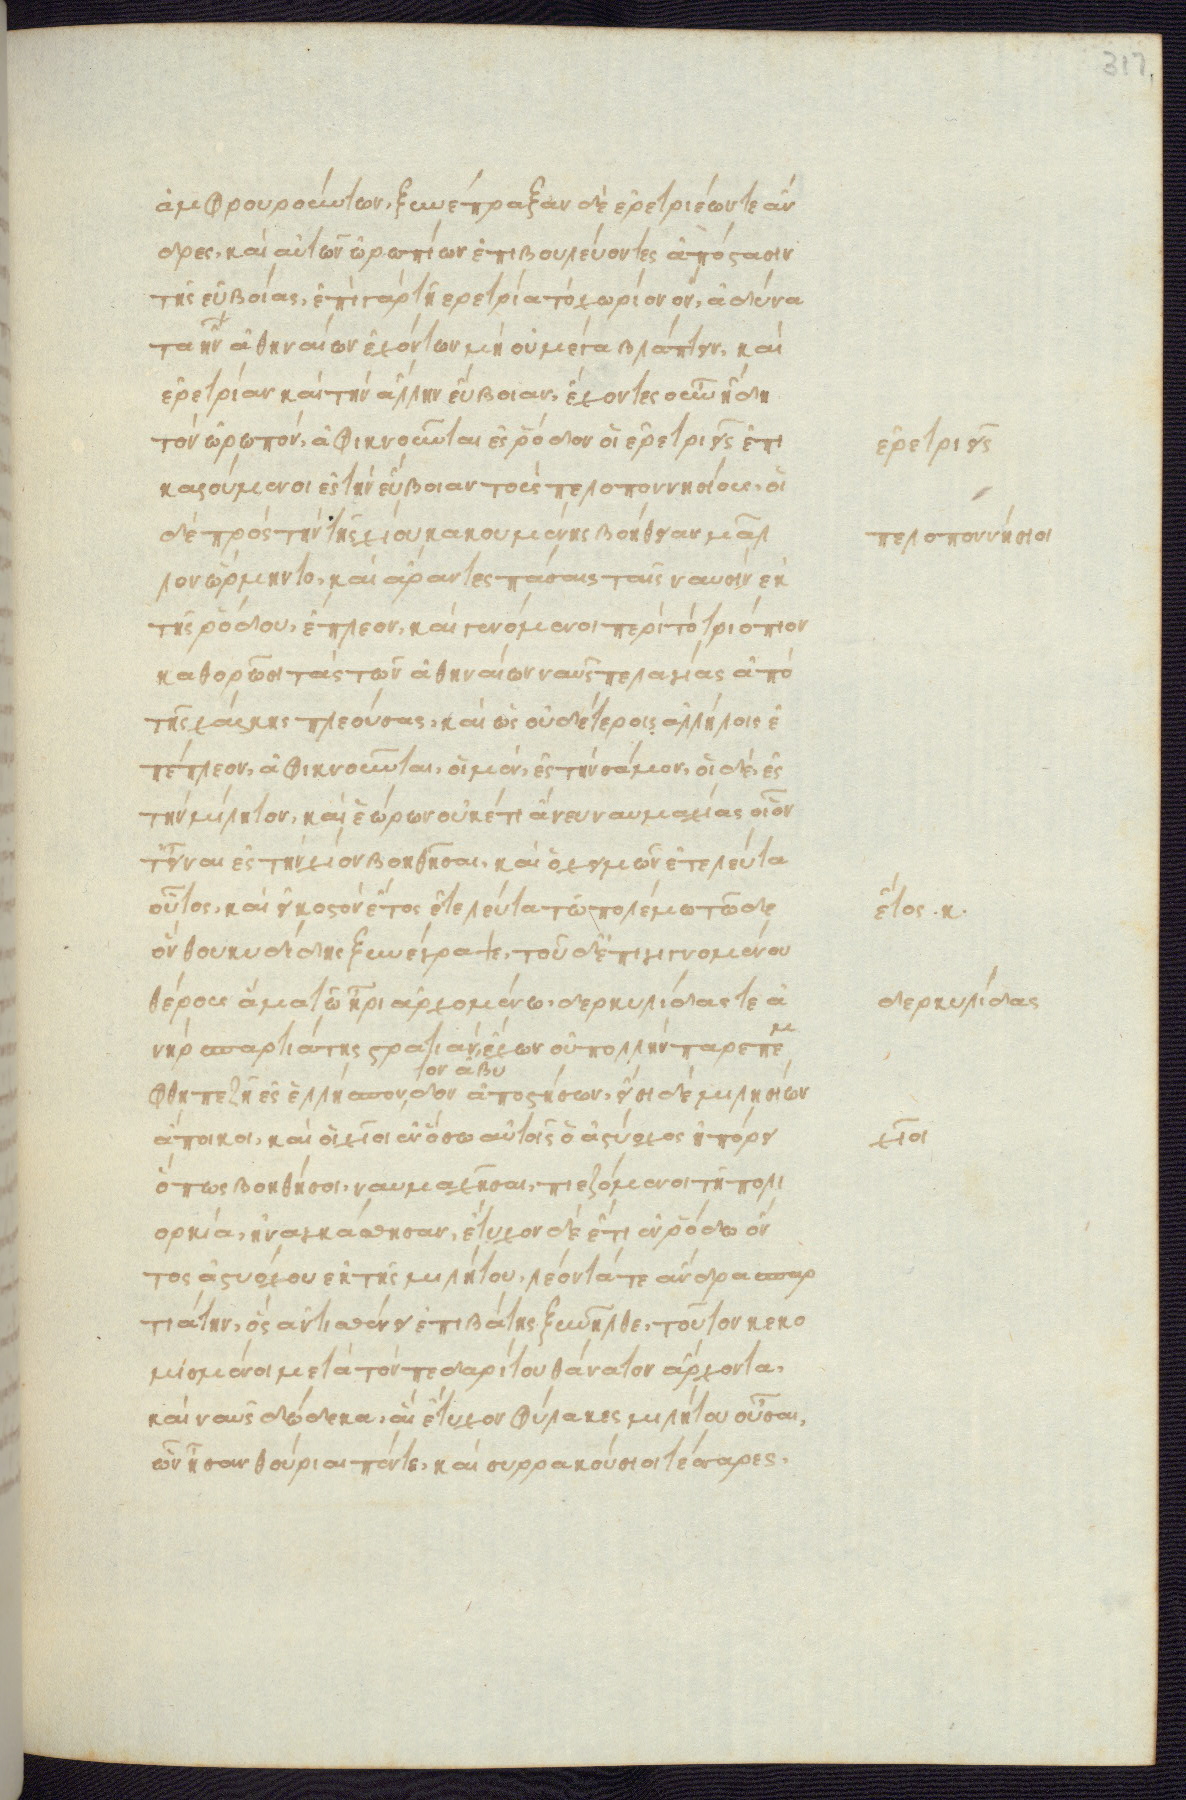 317
ἀμφρουρούντων. ξυνέπραξαν δὲ ἐρετριέων τε ἄν
δρες, καὶ αὐτῶν ὠρωπίων ἐπιβουλεύοντες ἀπόστασιν
τῆς εὐβοίας. ἐπὶ γὰρ τῇ ἐρετρία τὸ χωρίον ὂν, ἀδύνα
τα ἦν ἀθηναίων ἐχόντων μὴ οὐ μέγα βλάπτειν, καὶ
ἐρετρίαν καὶ τὴν ἄλλην εὔβοιαν. ἔχοντες οὖν ἤδη
τὸν ὠρωπὸν, ἀφικνοῦνται ἐς ῥόδον οἱ ἐρετριεῖς ἐπι
καλούμενοι ἐς τὴν εὔβοιαν τοὺς πελοποννησίους. οἱ
δὲ πρὸς τὴν τῆς χίου κακουμένης βοήθειαν μᾶλ
λον ὥρμηντο, καὶ ἄραντες πάσαις ταῖς ναυσὶν ἐκ
τῆς ῥόδου, ἔπλεον. καὶ γενόμενοι περὶ τὸ τριόπιον
καθορῶσι τὰς τῶν ἀθηναίων ναῦς πελαγίας ἀπὸ
τῆς χάλκης πλεούσας. καὶ ὡς οὐδέτεροις ἀλλήλοις ἐ
πέπλεον, ἀφικνοῦνται, οἱ μὲν, ἐς τὴν σάμον, οἱ δὲ, ἐς
τὴν μίλητον, καὶ ἑώρων οὐκέτι ἄνευ ναυμαχίας οἷόν
τ' εἶναι ἐς τὴν χίον βοηθῆσαι. καὶ ὁ χειμὼν ἐτελεύτα
οὗτος, καὶ εἰκοστὸν ἔτος ἐτελεύτα τῷ πολέμω τῶδε
ὃν θουκυδίδης ξυνέγραψε. τοῦ δ' ἐπιγιγνομένου
θέρους ἅμα τῷ ἦρι ἀρχομένω, δερκυλίδας τε ἀ
νὴρ σπαρτιάτης στρατιὰν ἔχων οὐ πολλὴν παρεπέμ
φθη πεζῇ ἐς ἑλλήσποντον ἄβυδον ἀποστήσων, εἰσὶ δὲ μιλησίων
ἄποικοι. καὶ οἱ χῖοι ἐν ὅσω αὐτοῖς ὁ ἀστύοχος ἠπόρει
ὅπως βοηθήσοι, ναυμαχῆσαι, πιεζόμενοι τῇ πολι
ορκία, ἠναγκάσθησαν. ἔτυχον δὲ ἔτι ἐν ῥόδω ὄν
τος ἀστυόχου ἐκ τῆς μιλήτου, λέοντά τε ἄνδρα σπαρ
τιάτην, ὃς ἀντισθένει ἐπιβάτης ξυνῆλθε, τοῦτον κεκο
μισμένοι μετὰ τὸν πεδαρίτου θάνατον ἄρχοντα,
καὶ ναῦς δώδεκα, αἳ ἔτυχον φύλακες μιλήτου οὖσαι,
ὧν ἦσαν θούριαι πέντε, καὶ συρρακούσιοι τέσσαρες,
ἐρετριεῖς
πελοποννήσιοι
ἔτος. κ.
δερκυλίδας
χῖοι